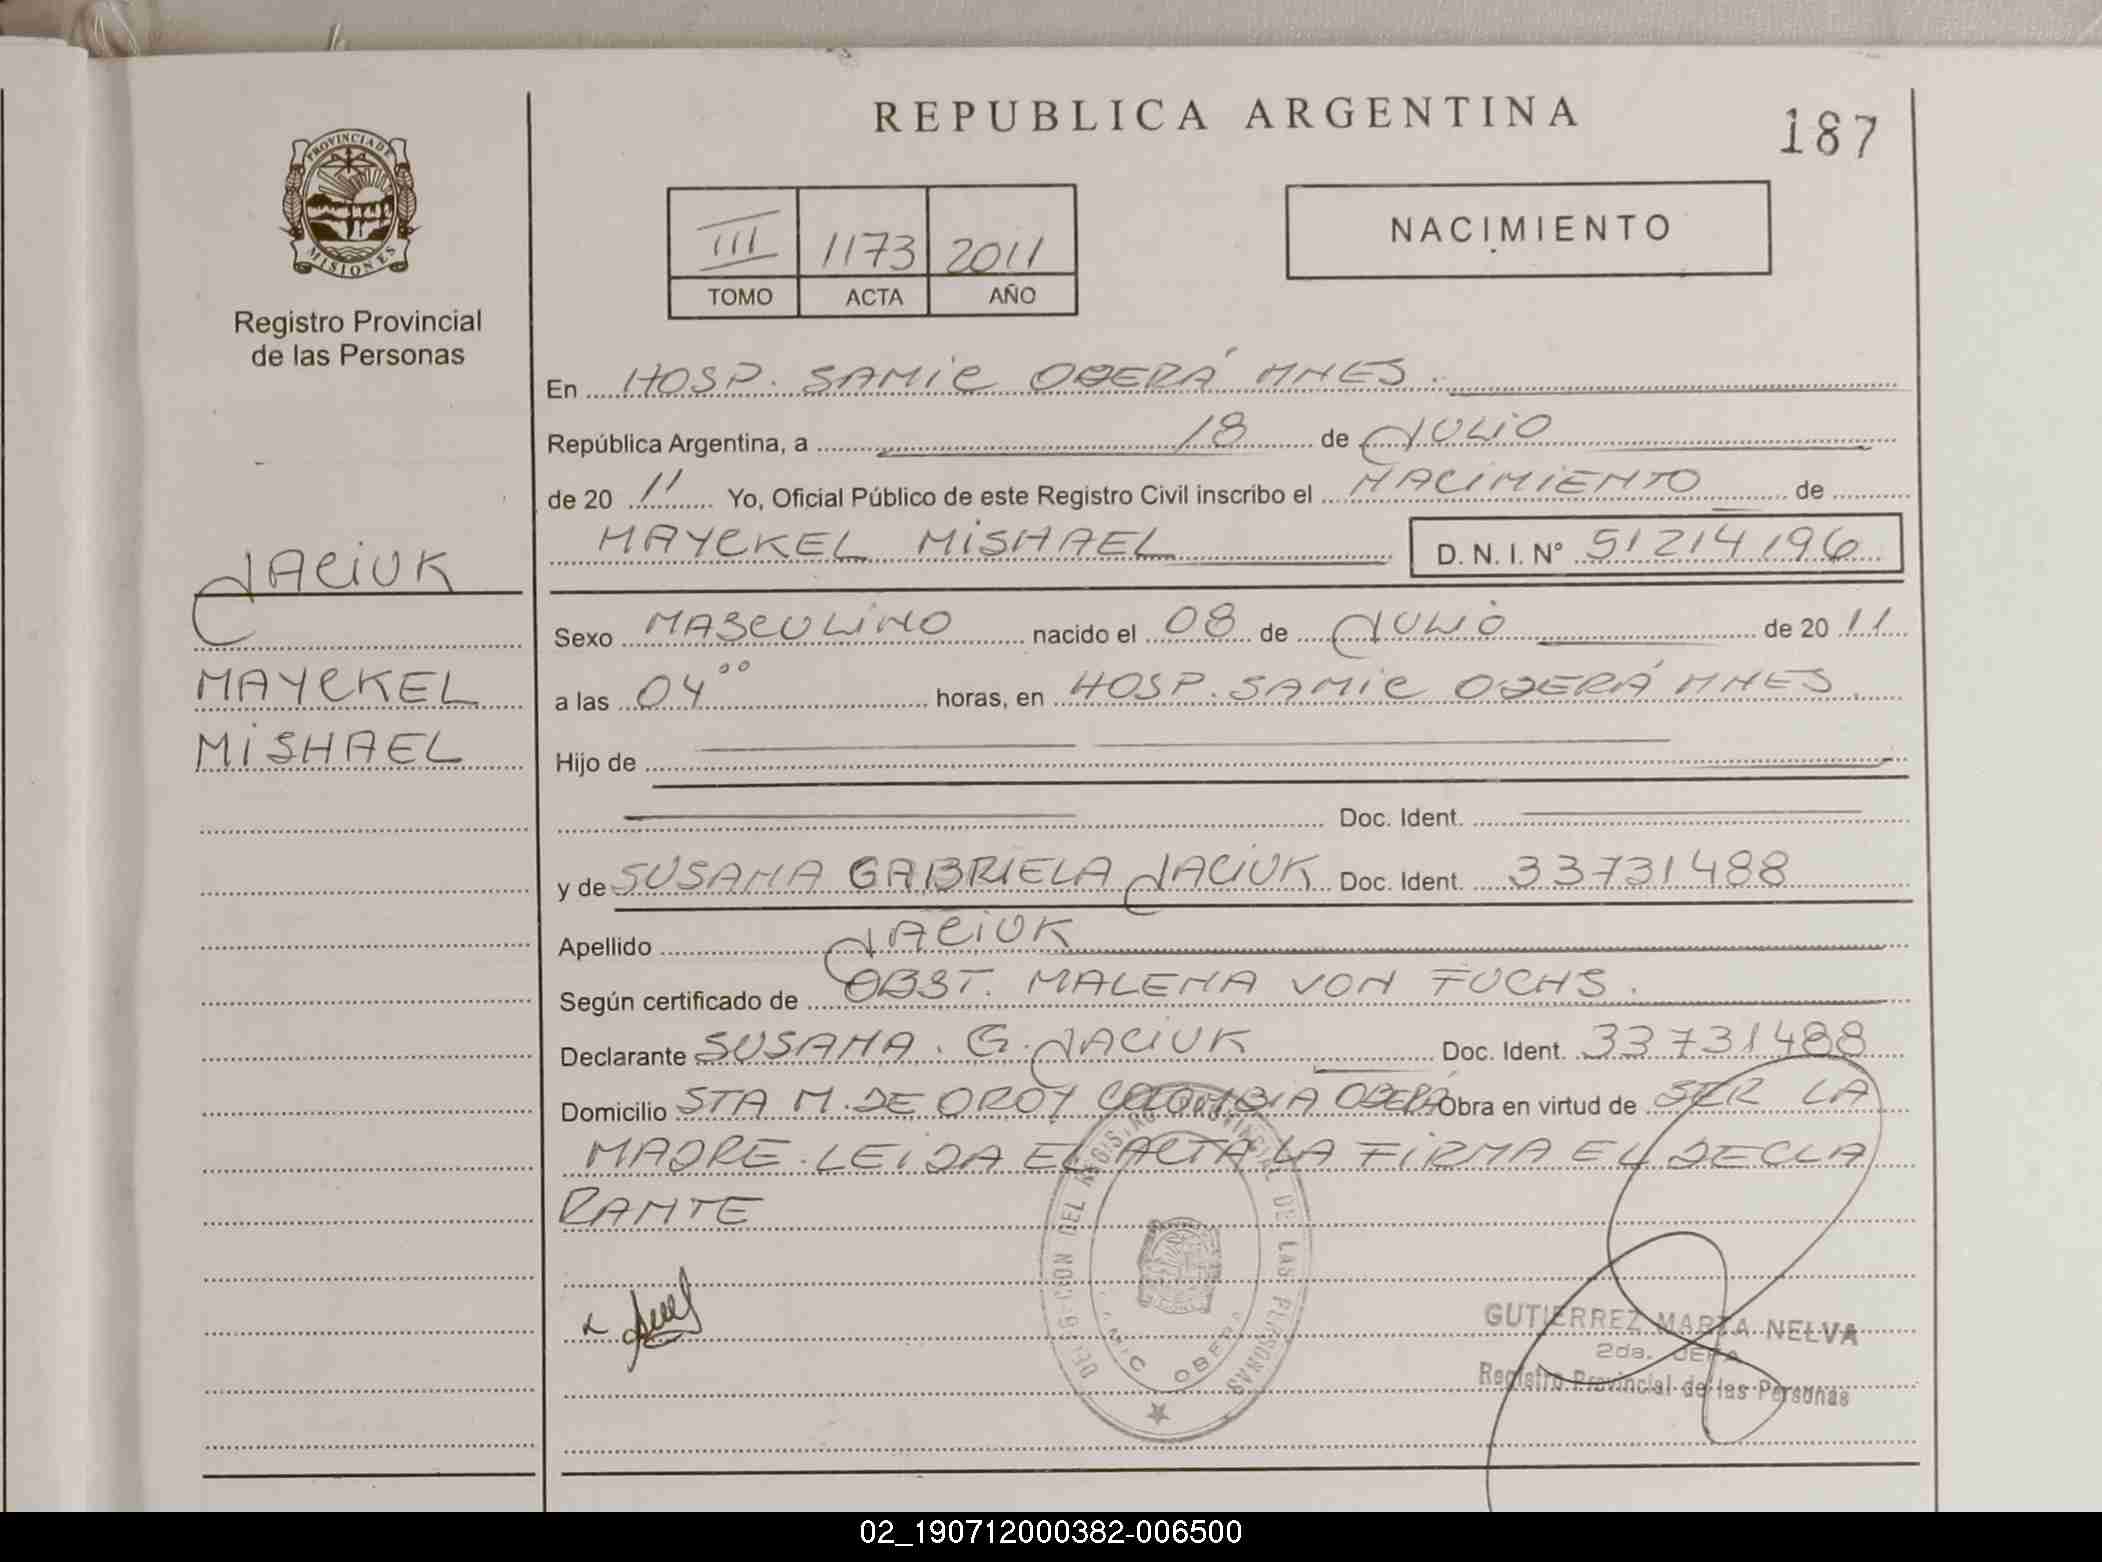 REPUBLICA ARGENTINA
187
PROVINCIA DE
MISIONES
Registro Provincial
de las Personas
III 1173 2011
TOMO ACTA AÑO
NACIMIENTO
En HOSP. SAMIC OBERÁ MNES.
República Argentina, a 18 de JULIO
de 20 11 Yo, Oficial Público de este Registro Civil inscribo el NACIMIENTO de
MAYCKEL MISHAEL D. N. I. Nº 51214196
JACIUK
MAYCKEL
MISHAEL
Sexo MASCULINO nacido el 08 de JULIO de 20 11
a las 04⁰⁰ horas, en HOSP. SAMIC OBERÁ MNES.
Hijo de
Doc. Ident.
y de SUSANA GABRIELA JACIUK Doc. Ident. 33731488
Apellido JACIUK
Según certificado de OBST. MALENA VON FUCHS.
Declarante SUSANA. G. JACIUK Doc. Ident. 33731488
Domicilio STA M. DE OROY COLOMBIA OBERÁ Obra en virtud de SER LA
MADRE. LEIDA EL ACTA LA FIRMA EL DECLA
RANTE
DELEGACION DEL REGISTRO PROVINCIAL DE LAS PERSONAS
OBERA
GUTIERREZ MARTA NELVA
2da. JEFA
Registro Provincial de las Personas
02_190712000382-006500